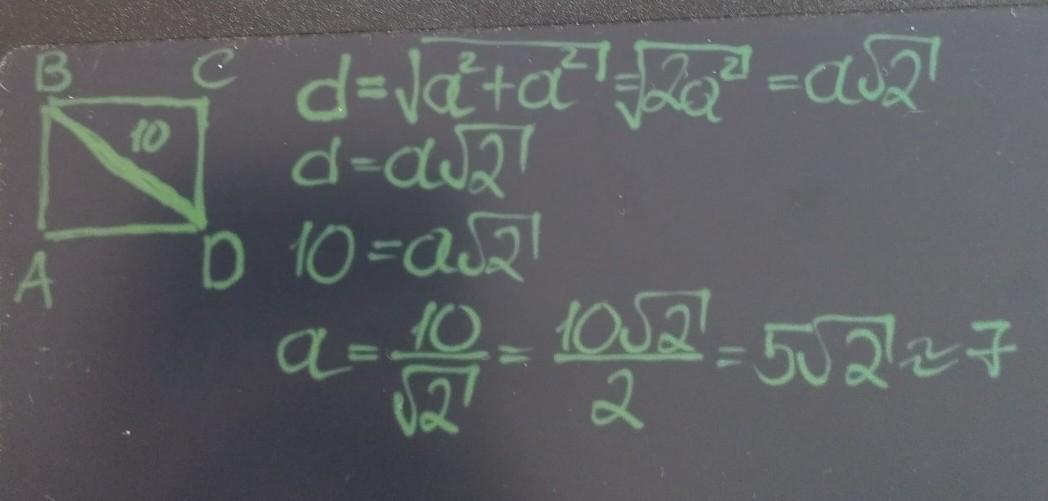 B C
10
A D
d=√a²+a² =√2a² =a√2
d=a√2
10=a√2
a=10/√2=10√2/2=5√2≈7